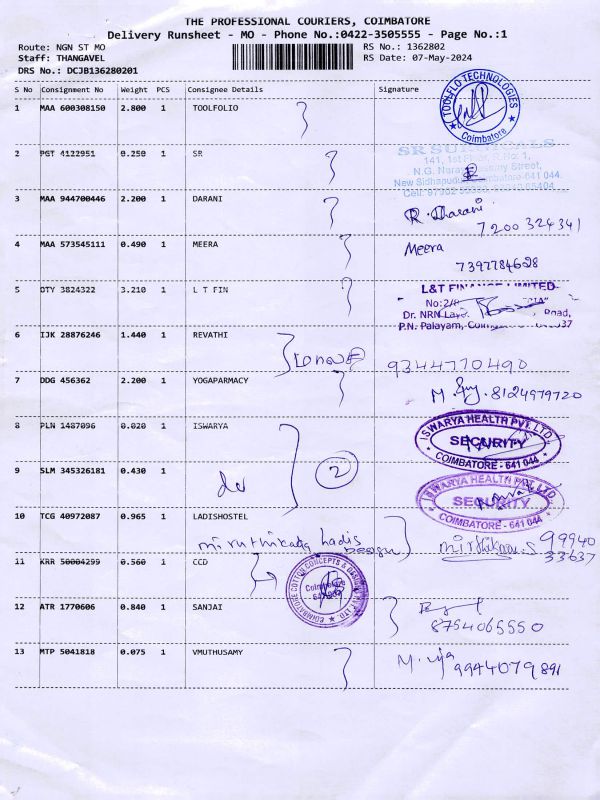 THE PROFESSIONAL COURIERS, COIMBATORE
Delivery Runsheet - MO - Phone No.:0422-3505555 - Page No.:1
Route: NGN ST MO
RS No.: 1362802
Staff: THANGAVEL
RS Date: 07-May-2024
DRS No.: DCJB136280201
S No Consignment No Weight PCS Consignee Details Signature
1 MAA 600308150 2.800 1 TOOLFOLIO
TOOLFLO TECHNOLOGIES
Coimbatore
2 PGT 4122951 0.250 1 SR
141, 1st Floor, R.No: 1,
Street,
New Sidhapudur, Coimbatore-641 044.
3 MAA 944700446 2.200 1 DARANI
R. Darani
7200324341
4 MAA 573545111 0.490 1 MEERA
Meera
7397784628
5 DTY 3824322 3.210 1 L T FIN
L&T FINANCE LIMITED
Dr. NRN Road,
P.N. Palayam,
6 IJK 28876246 1.440 1 REVATHI
9344770490
7 DDG 456362 2.200 1 YOGAPARMACY
M. 8124979720
8 PLN 1487096 0.020 1 ISWARYA
ISWARYA HEALTH PVT. LTD.
SECURITY
COIMBATORE - 641 044
9 SLM 345326181 0.430 1
do 2
ISWARYA HEALTH PVT. LTD.
SECURITY
COIMBATORE - 641 044
10 TCG 40972087 0.965 1 LADISHOSTEL
99940
33637
11 KRR 50004299 0.560 1 CCD
Coimbatore
12 ATR 1770606 0.840 1 SANJAI
8754065550
13 MTP 5041818 0.075 1 VMUTHUSAMY
9944079891